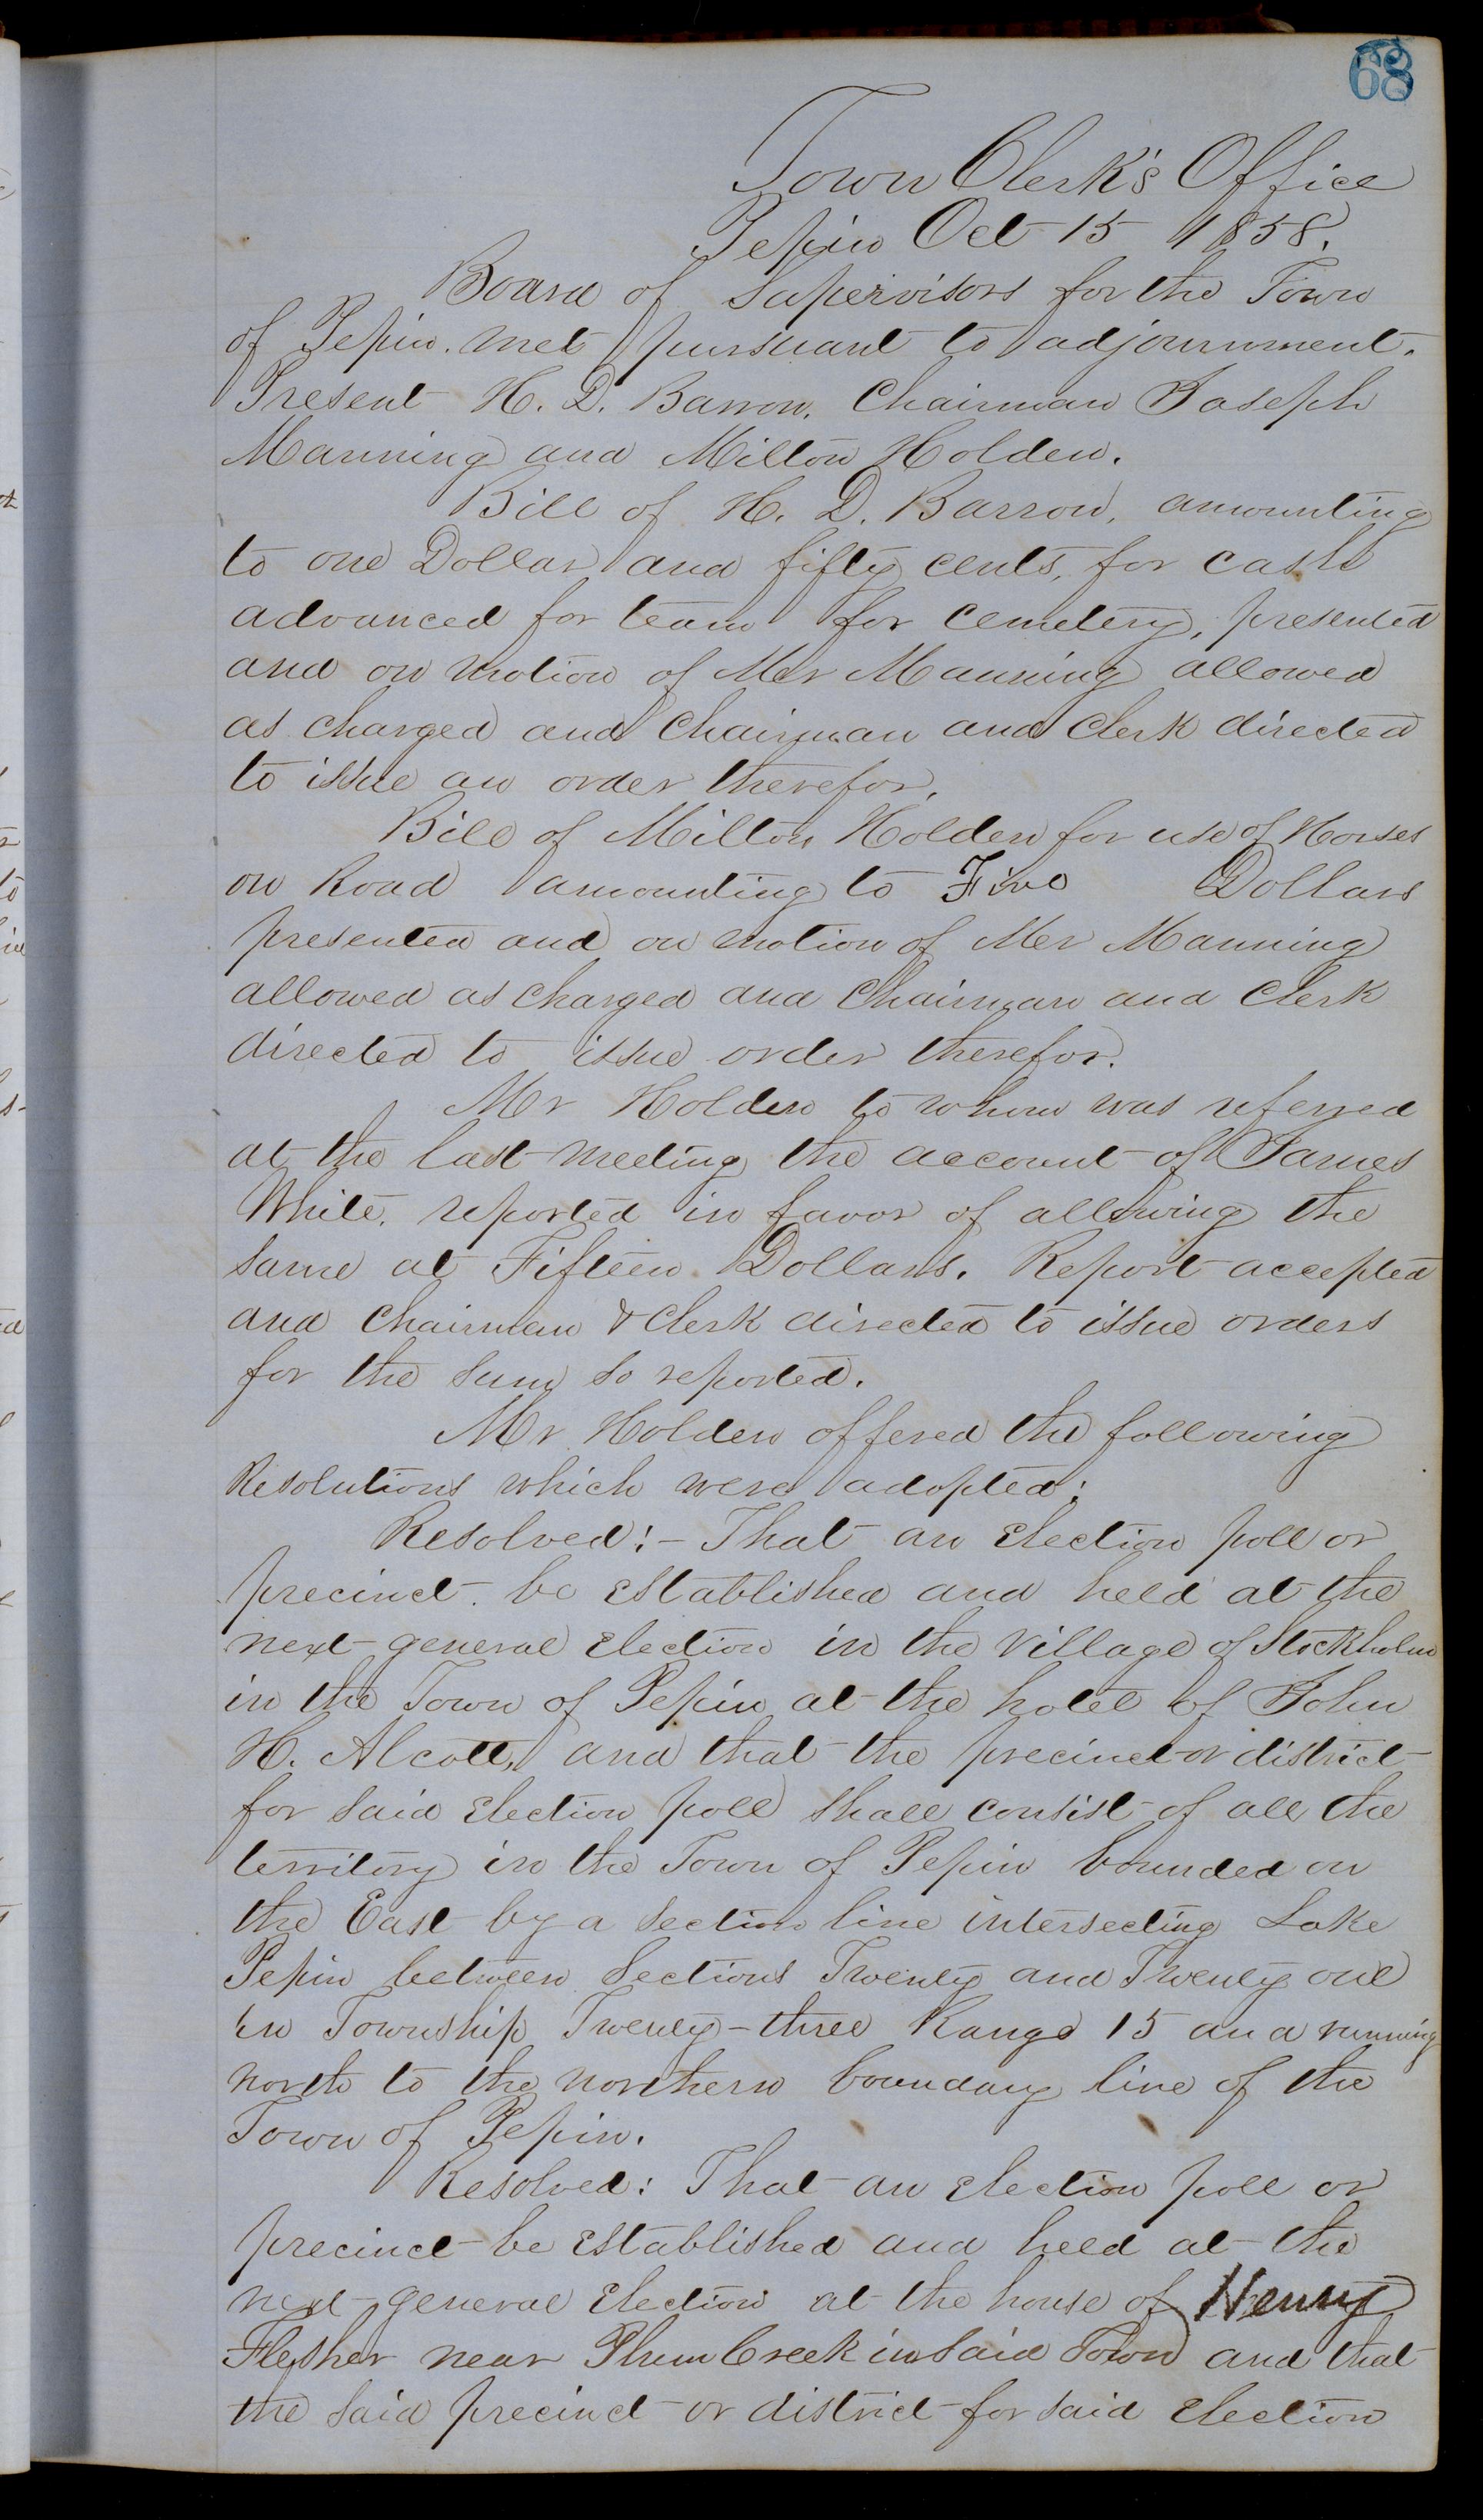 68
Town Clerk's Office
Pepin Oct 15 1858.
Board of Supervisors for the Town
of Pepin. met pursuant to adjournment.
Present H. D. Barron. Chairman Joseph
Manning and Milton Holden.
Bill of H. D. Barron, amounting
to one Dollar and fifty cents, for cash
advanced for team for cemetery, presented
and on motion of Mr Manning allowed
as charged and Chairman and Clerk directed
to issue an order therefor.
Bill of Milton Holden for use of Horses
on Road amounting to Five Dollars
presented and on motion of Mr Manning
allowed as charged and Chairman and Clerk
directed to issue order therefor.
Mr Holden to whom was referred
at the last meeting the account of James
White, reported in favor of allowing the
same at Fifteen Dollars. Report accepted
and Chairman & Clerk directed to issue orders
for the sum so reported.
Mr Holden offered the following
Resolutions which were adopted:
Resolved:- That an Election poll or
precinct be established and held at the
next general Election in the village of Stockholm
in the Town of Pepin at the hotel of John
H. Alcott, and that the precinct or district
for said Election poll shall consist of all the
territory in the Town of Pepin bounded on
the East by a section line intersecting Lake
Pepin between Sections Twenty and Twenty one
in Township Twenty-three Range 15 and running
north to the northern boundary line of the
Town of Pepin.
Resolved: That an Election poll or
precinct be established and held at the
next general Election at the house of Henry
Flesher near Plum Creek in said Town and that
the said precinct or district for said Election